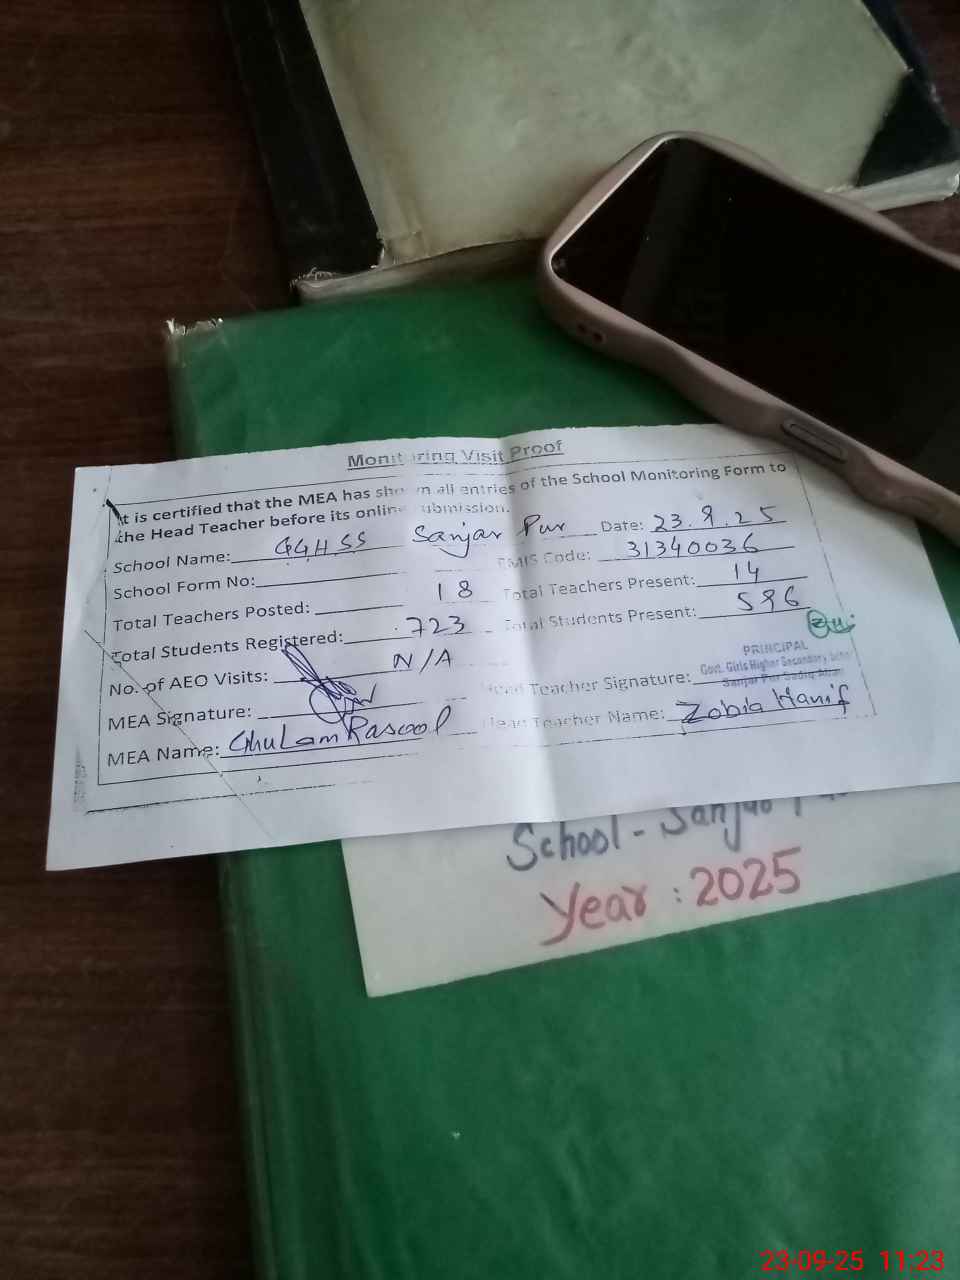 Monitoring Visit Proof
It is certified that the MEA has shown all entries of the School Monitoring Form to
the Head Teacher before its online submission.
School Name: GGHSS Sanjar Pur Date: 23.9.25
School Form No: EMIS Code: 31340036
Total Teachers Posted: 18 Total Teachers Present: 14
Total Students Registered: 723 Total Students Present: 596
No. of AEO Visits: N/A
PRINCIPAL
Govt. Girls Higher Secondary
Sanjar Pur Sadiq Abad
MEA Signature: Head Teacher Signature:
MEA Name: Ghulam Rasool Head Teacher Name: Zobia Hanif
School - Sanjar
Year : 2025
23-09-25 11:23